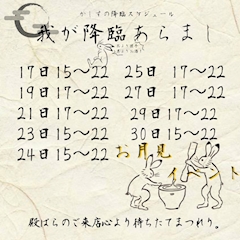 かぐすの降臨スケジュール
我が降臨あらまし
17日15〜22 25日 17〜22
19日17〜22 27日17〜22
21日17〜22 29日17〜22
23日15〜22 30日15〜22
24日15〜22 お月見
イベント
殿ばらのご来店心より待ちたてまつれり。